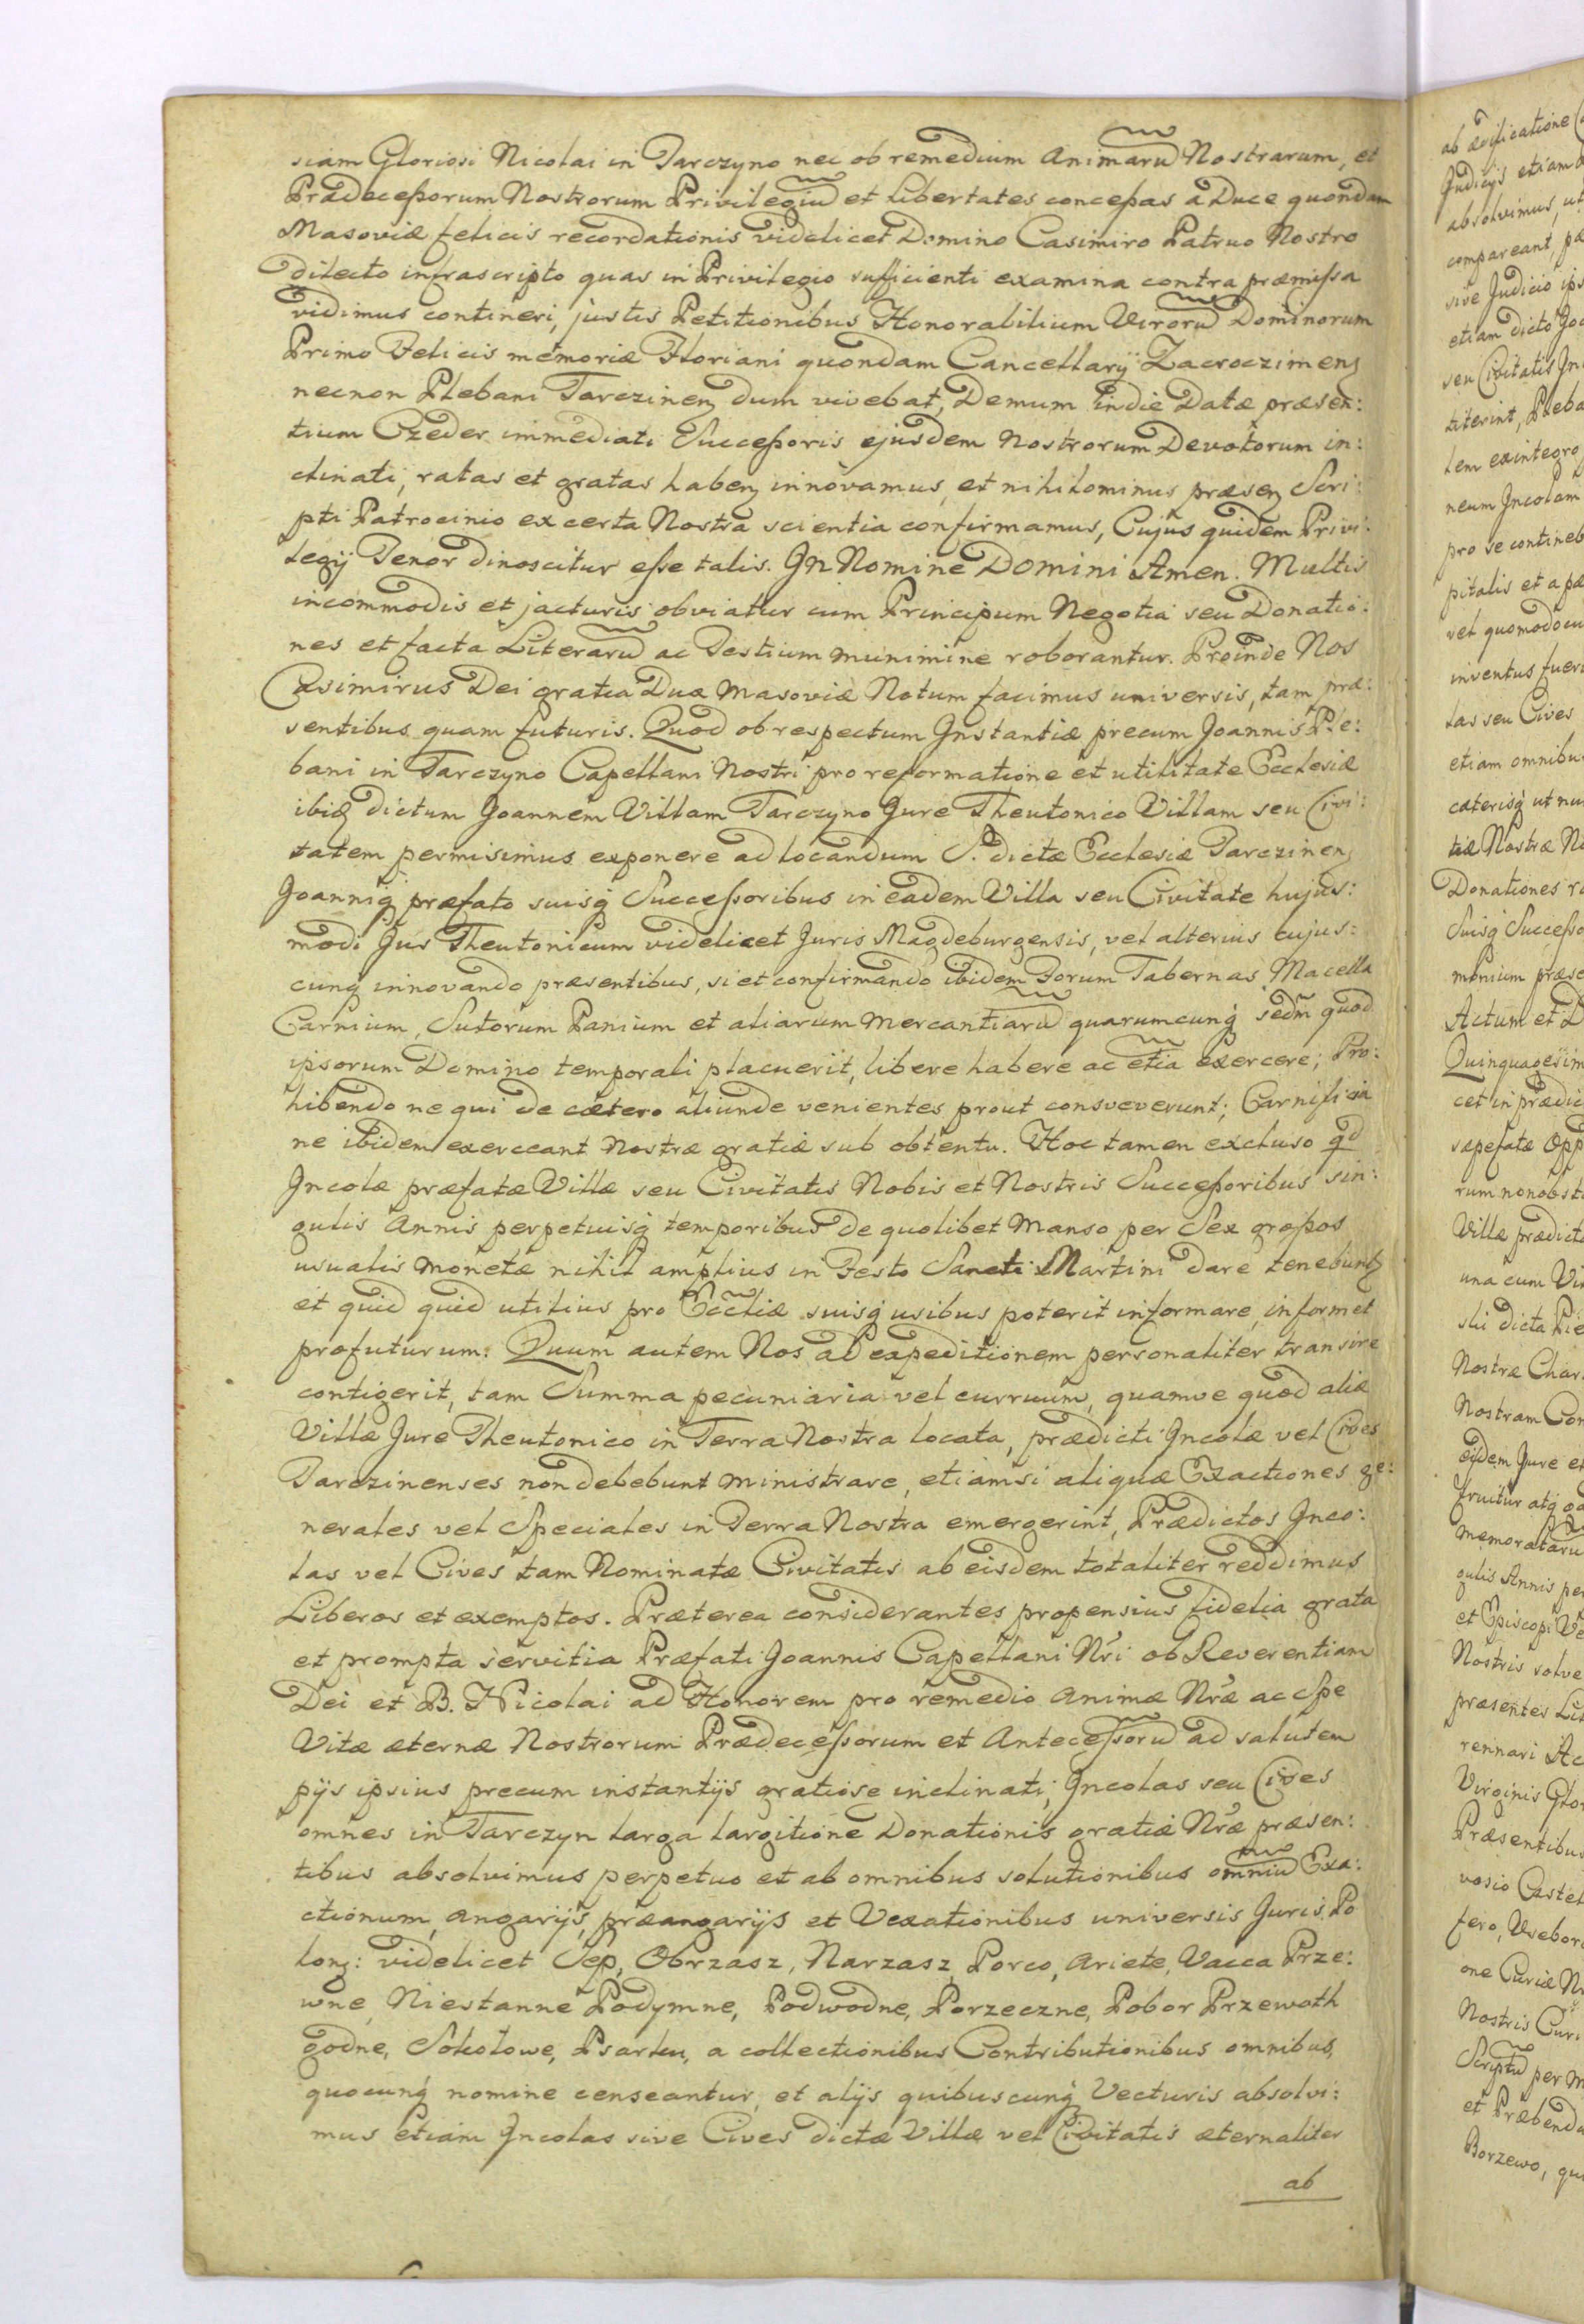 siam Gloriosi Nicolai in Tarczyno nec ob remedium Animarũ Nostrarum, et
Prædeceßorum Nostrorum Privilegiũ et Libertates conceßas à Duce quondam
Masoviæ felicis recordationis videlicet Domino Casimiro Patruo Nostro
dilecto infrascripto quas in Privilegio sufficienti examina contra præmissa
vidimus contineri, justis Petitionibus Honorabilium Virorũ Dominorum
Primo Felicis memoriæ Floriani quondam Cancellarÿ Zacroczimenȝ
necnon Plebani Tarczinenȝ dum vivebat, Demum in die Datæ præsen:
tium Czeder immediati Succeßoris ejusdem Nostrorum Devotorum in:
clinati, ratas et gratas habenȝ innovamus, et nihilominus præsenȝ Scri:
pti Patrocinio ex certa Nostra scientia confirmamus, Cujus quidem Privi:
legÿ Tenor dinoscitur esse talis. In Nomine Domini Amen. Multis
incommodis et jacturis obviatur cum Principum Negotia seu Donatio:
nes et facta Literarũ ac Testium munimine roborantur. Proinde Nos
Casimirus Dei gratia Dux Masoviæ Notum facimus universis, tam præ:
sentibus quam futuris. Quod ob respectum Instantiæ precum Joannis Ple:
bani in Tarczyno Capellani Nostri pro reformatione et utilitate Ecclesiæ
ibiȝ dictum Joannem Villam Tarczyno Jure Theutonico Villam seu Civi:
tatem permisimus exponere ad locandum S. dictæ Ecclesiæ Tarczinenȝ
Joanniq́ præfato suisq́ Successoribus in eadem Villa seu Civitate hujus:
modi Jus Theutonicum videlicet Juris Magdeburgensis, vel alterius cujus:
cunq́ innovando præsentibus, si et confirmando ibidem Forum Tabernas Macella
Carnium, Sutorum Panium et aliarum Mercantiarũ quarumcunq́ sedm̃ quod
ipsorum Domino temporali placuerit, libere habere ac etiã exercere; Pro:
hibendo ne qui de cætero aliunde venientes prout consveverunt; Carnificia
ne ibidem exerceant Nostræ gratiæ sub obtentu. Hoc tamen excluso qd
Incolæ præfatæ Villæ seu Civitatis Nobis et Nostris Succeßoribus sin:
gulis Annis perpetuisq́ temporibus de quolibet Manso per Sex großos
usualis Monetæ nihil amplius in Festo Sancti Martini dare tenebunȝ
et quid quid utilius pro Eccliæ suisq́ usibus poterit informare, informet
profuturum. Quum autem Nos ad expeditionem personaliter transire
contigerit, tam Summa pecuniaria vel curruum, quamve quod aliæ
Villæ Jure Theutonico in Terra Nostra locata, prædicti Incolæ vel Cives
Tarczinenses non debebunt ministrare, etiamsi aliquæ Exactiones ge:
nerales vel Speciales in Terra Nostra emergerint, Prædictos Inco:
las vel Cives tam Nominatæ Civitatis ab eisdem totaliter reddimus
Liberos et exemptos. Præterea considerantes propensius fidelia grata
et prompta servitia Præfati Joannis Capellani Nri ob Reverentiam
Dei et B. Nicolai ad Honorem pro remedio Animæ Nræ ac Spe
Vitæ æternæ Nostrorum Prædecessorum et Antecessorũ ad salutem
pÿs ipsius precum instantÿs gratiose inclinati, Incolas seu Cives
omnes in Tarczyn larga largitione Donationis gratiæ Nræ præsen:
tibus absolvimus perpetuo et ab omnibus solutionibus omniũ Exa:
ctionum, angarÿs, præangarÿs et Vexationibus universis Juris Po
lonȝ: videlicet Sep, Obrzasz, Narzasz Porco, Ariete, Vacca Prze:
wne, Niestanne Podymne, Podwodne, Porzeczne, Pobor Przewoth
godne, Sokołowe, Psarku, a collectionibus Contributionibus omnibus,
quocunq́ nomine censeantur, et alÿs quibuscunq́ Vecturis absolvi:
mus etiam Incolas sive Cives dictæ Villæ vel Civitatis æternaliter
ab
ab ædificatione
Judicÿs etiam
absolvimus, ut
compareant,
sive Judicio
etiam dicto
seu Civitatis
titerint,
tem ex integro
neum Incolam
pro se
pitalis et a
vel
inventus
tas seu Cives
etiam
cæterisq́ ut
tiæ Nostræ
Donationes
Suisq́
monium
Actum et
cet in
sæpefatæ
rum
Villæ
una cum
slii dicta
Nostræ
Nostram
ejdem Jure
fruitur atq́
gulis Annis
et Episcopi
Nostris
præsentes
rennari
Virginis
Præsentibus
vosio
fero,
one Curiæ
Nostris
Scriptũ per
et
Borzewo,